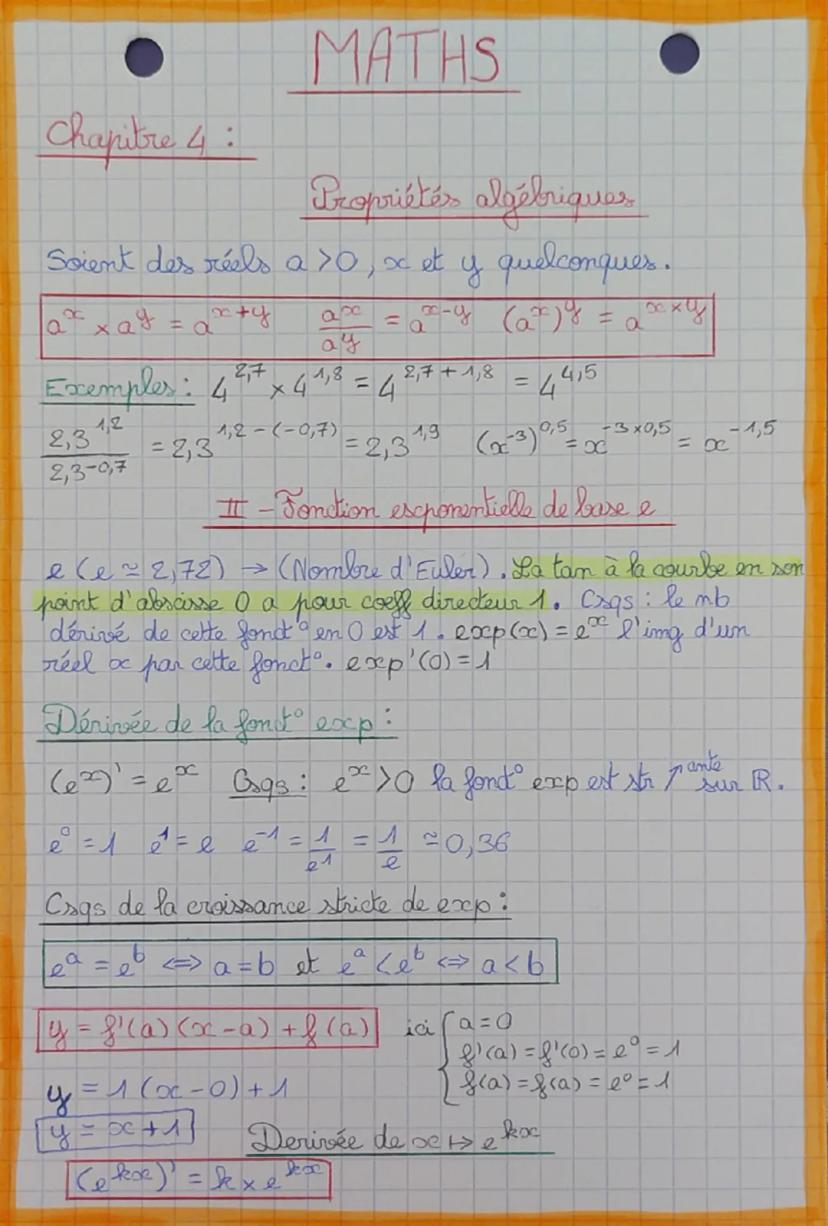 MATHS
Chapitre 4 :
Propriétés algébriques
Soient des réels a > 0, x et y quelconques.
a^x × a^y = a^(x+y)   a^x / a^y = a^(x-y)   (a^x)^y = a^(x×y)
Exemples : 4^2,7 × 4^1,8 = 4^(2,7+1,8) = 4^4,5
2,3^1,2 / 2,3^-0,7 = 2,3^(1,2-(-0,7)) = 2,3^1,9   (x^-3)^0,5 = x^(-3×0,5) = x^-1,5
II - Fonction exponentielle de base e
e (e ≃ 2,72) → (Nombre d'Euler). La tan à la courbe en son
point d'abscisse 0 a pour coeff directeur 1. Csqs : le nb
dérivé de cette fonct° en 0 est 1. exp(x) = e^x l'img d'un
réel x par cette fonct°. exp'(0) = 1
Dérivée de la fonct° exp :
(e^x)' = e^x   Csqs : e^x > 0 la fonct° exp est str ↗ante sur ℝ.
e^0 = 1   e^1 = e   e^-1 = 1/e^1 = 1/e ≃ 0,36
Csqs de la croissance stricte de exp :
e^a = e^b ⇔ a = b et e^a < e^b ⇔ a < b
y = f'(a) (x - a) + f(a)   ici { a = 0
f'(a) = f'(0) = e^0 = 1
f(a) = f(a) = e^0 = 1
y = 1 (x - 0) + 1
y = x + 1
Derivée de x ↦ e^kx
(e^kx)' = k × e^kx